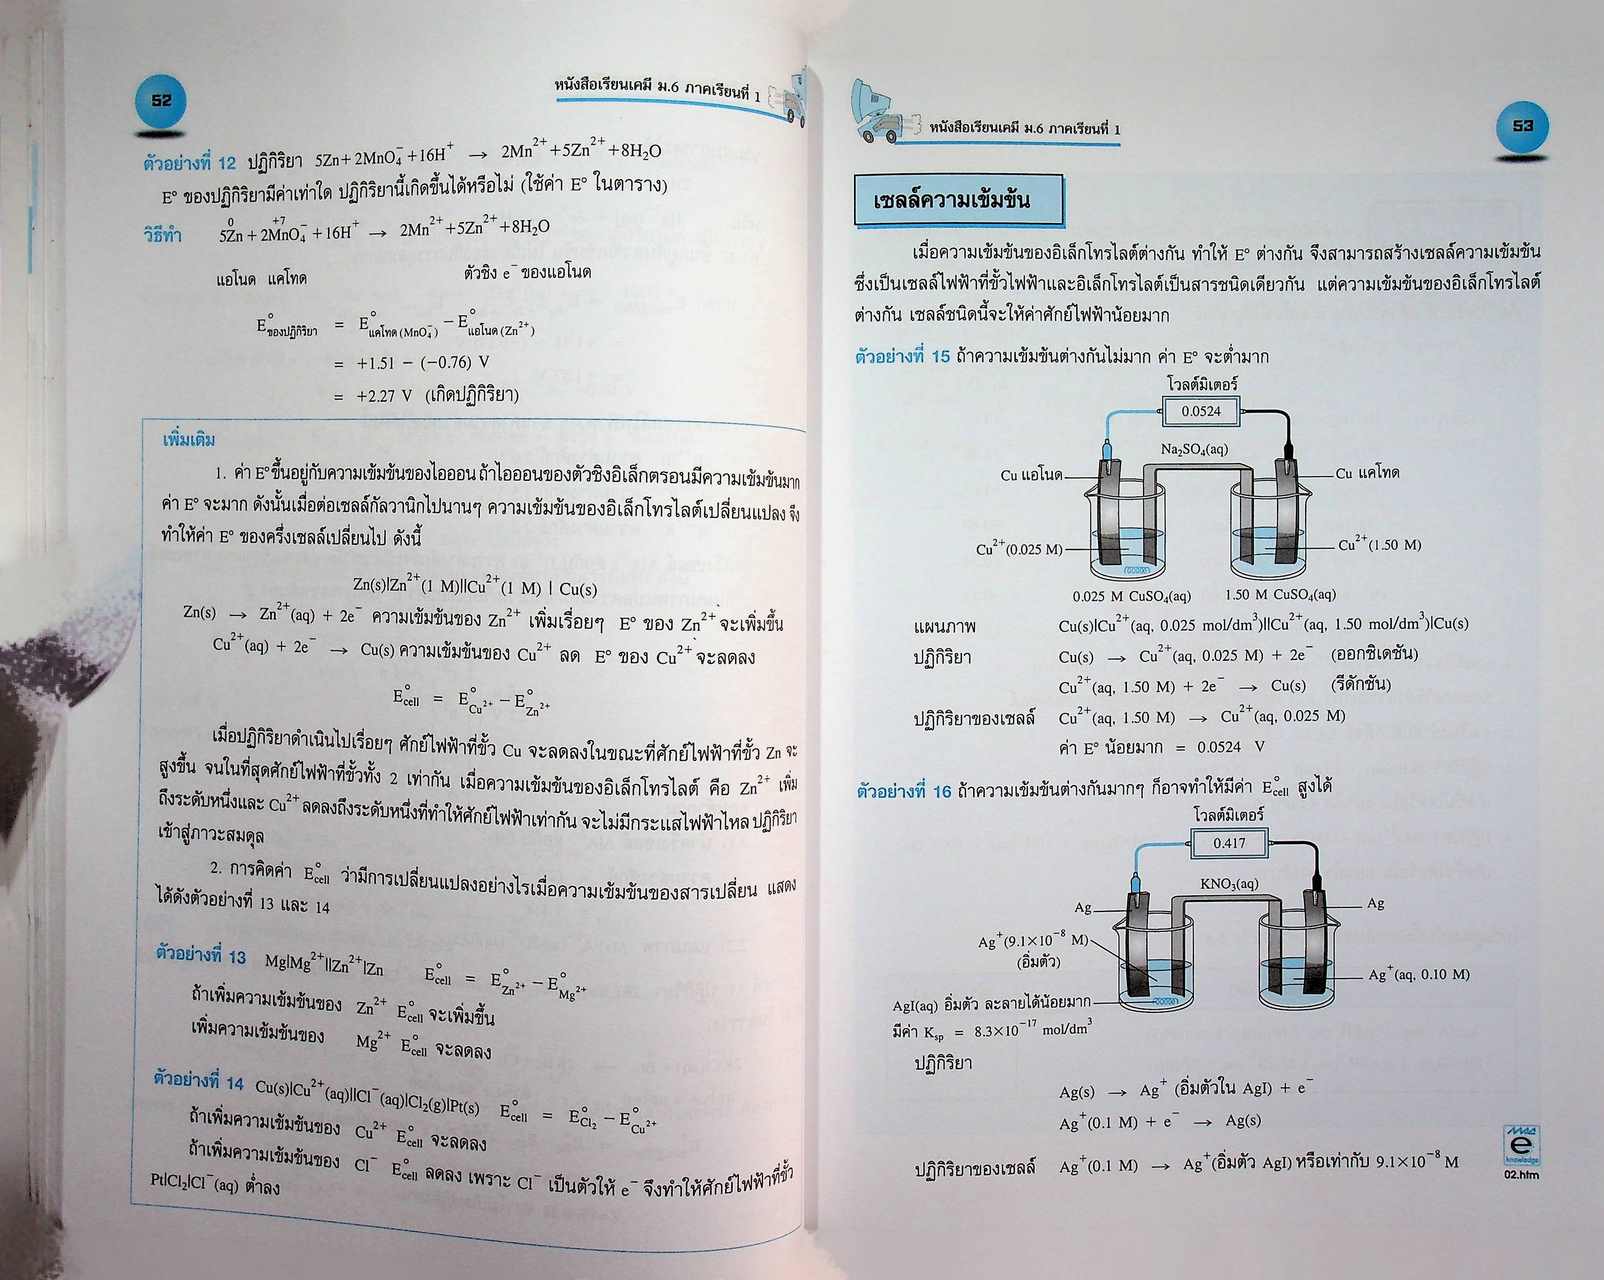 52
หนังสือเรียนเคมี ม.6 ภาคเรียนที่ 1
ตัวอย่างที่ 12 ปฏิกิริยา 5Zn + 2MnO₄⁻ + 16H⁺ → 2Mn²⁺ + 5Zn²⁺ + 8H₂O
E° ของปฏิกิริยามีค่าเท่าใด ปฏิกิริยานี้เกิดขึ้นได้หรือไม่ (ใช้ค่า E° ในตาราง)
0 +7
วิธีทำ 5Zn + 2MnO₄⁻ + 16H⁺ → 2Mn²⁺ + 5Zn²⁺ + 8H₂O
แอโนด แคโทด ตัวชิง e⁻ ของแอโนด
E°ของปฏิกิริยา = E°แคโทด (MnO₄⁻) − E°แอโนด (Zn²⁺)
= +1.51 − (−0.76) V
= +2.27 V (เกิดปฏิกิริยา)
เพิ่มเติม
1. ค่า E° ขึ้นอยู่กับความเข้มข้นของไอออน ถ้าไอออนของตัวชิงอิเล็กตรอนมีความเข้มข้นมาก
ค่า E° จะมาก ดังนั้นเมื่อต่อเซลล์กัลวานิกไปนานๆ ความเข้มข้นของอิเล็กโทรไลต์เปลี่ยนแปลง จึง
ทำให้ค่า E° ของครึ่งเซลล์เปลี่ยนไป ดังนี้
Zn(s)|Zn²⁺(1 M)||Cu²⁺(1 M) | Cu(s)
Zn(s) → Zn²⁺(aq) + 2e⁻ ความเข้มข้นของ Zn²⁺ เพิ่มเรื่อยๆ E° ของ Zn²⁺ จะเพิ่มขึ้น
Cu²⁺(aq) + 2e⁻ → Cu(s) ความเข้มข้นของ Cu²⁺ ลด E° ของ Cu²⁺ จะลดลง
E°cell = E°Cu²⁺ − E°Zn²⁺
เมื่อปฏิกิริยาดำเนินไปเรื่อยๆ ศักย์ไฟฟ้าที่ขั้ว Cu จะลดลงในขณะที่ศักย์ไฟฟ้าที่ขั้ว Zn จะ
สูงขึ้น จนในที่สุดศักย์ไฟฟ้าที่ขั้วทั้ง 2 เท่ากัน เมื่อความเข้มข้นของอิเล็กโทรไลต์ คือ Zn²⁺ เพิ่ม
ถึงระดับหนึ่งและ Cu²⁺ ลดลงถึงระดับหนึ่งที่ทำให้ศักย์ไฟฟ้าเท่ากัน จะไม่มีกระแสไฟฟ้าไหล ปฏิกิริยา
เข้าสู่ภาวะสมดุล
2. การคิดค่า E°cell ว่ามีการเปลี่ยนแปลงอย่างไรเมื่อความเข้มข้นของสารเปลี่ยน แสดง
ได้ดังตัวอย่างที่ 13 และ 14
ตัวอย่างที่ 13 Mg|Mg²⁺||Zn²⁺|Zn E°cell = E°Zn²⁺ − E°Mg²⁺
ถ้าเพิ่มความเข้มข้นของ Zn²⁺ E°cell จะเพิ่มขึ้น
เพิ่มความเข้มข้นของ Mg²⁺ E°cell จะลดลง
ตัวอย่างที่ 14 Cu(s)|Cu²⁺(aq)||Cl⁻(aq)|Cl₂(g)|Pt(s) E°cell = E°Cl₂ − E°Cu²⁺
ถ้าเพิ่มความเข้มข้นของ Cu²⁺ E°cell จะลดลง
ถ้าเพิ่มความเข้มข้นของ Cl⁻ E°cell ลดลง เพราะ Cl⁻ เป็นตัวให้ e⁻ จึงทำให้ศักย์ไฟฟ้าที่ขั้ว
Pt|Cl₂|Cl⁻(aq) ต่ำลง
หนังสือเรียนเคมี ม.6 ภาคเรียนที่ 1
53
เซลล์ความเข้มข้น
เมื่อความเข้มข้นของอิเล็กโทรไลต์ต่างกัน ทำให้ E° ต่างกัน จึงสามารถสร้างเซลล์ความเข้มข้น
ซึ่งเป็นเซลล์ไฟฟ้าที่ขั้วไฟฟ้าและอิเล็กโทรไลต์เป็นสารชนิดเดียวกัน แต่ความเข้มข้นของอิเล็กโทรไลต์
ต่างกัน เซลล์ชนิดนี้จะให้ค่าศักย์ไฟฟ้าน้อยมาก
ตัวอย่างที่ 15 ถ้าความเข้มข้นต่างกันไม่มาก ค่า E° จะต่ำมาก
โวลต์มิเตอร์
0.0524
Na₂SO₄(aq)
Cu แอโนด
Cu แคโทด
Cu²⁺(0.025 M)
Cu²⁺(1.50 M)
0.025 M CuSO₄(aq) 1.50 M CuSO₄(aq)
แผนภาพ Cu(s)|Cu²⁺(aq, 0.025 mol/dm³)||Cu²⁺(aq, 1.50 mol/dm³)|Cu(s)
ปฏิกิริยา Cu(s) → Cu²⁺(aq, 0.025 M) + 2e⁻ (ออกซิเดชัน)
Cu²⁺(aq, 1.50 M) + 2e⁻ → Cu(s) (รีดักชัน)
ปฏิกิริยาของเซลล์ Cu²⁺(aq, 1.50 M) → Cu²⁺(aq, 0.025 M)
ค่า E° น้อยมาก = 0.0524 V
ตัวอย่างที่ 16 ถ้าความเข้มข้นต่างกันมากๆ ก็อาจทำให้มีค่า E°cell สูงได้
โวลต์มิเตอร์
0.417
KNO₃(aq)
Ag
Ag
Ag⁺(9.1×10⁻⁸ M)
(อิ่มตัว)
Ag⁺(aq, 0.10 M)
AgI(aq) อิ่มตัว ละลายได้น้อยมาก
มีค่า Ksp = 8.3×10⁻¹⁷ mol/dm³
ปฏิกิริยา
Ag(s) → Ag⁺ (อิ่มตัวใน AgI) + e⁻
Ag⁺(0.1 M) + e⁻ → Ag(s)
ปฏิกิริยาของเซลล์ Ag⁺(0.1 M) → Ag⁺(อิ่มตัว AgI) หรือเท่ากับ 9.1×10⁻⁸ M
MAC
e
knowledge
02.htm